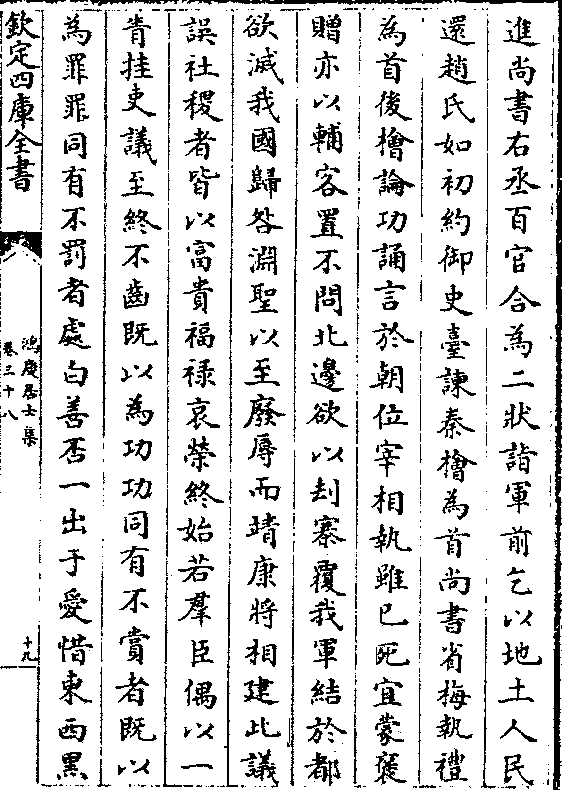 進尚書右丞百官合為二狀詣軍前乞以地土人民
還趙氏如初約御史臺諫秦檜為首尚書省梅執禮
為首後檜論功誦言於朝位宰相執雖已死宜蒙褒
贈亦以輔客置不問北邊欲以刦寨覆我軍結於都
欲滅我國歸咎淵聖以至廢辱而靖康將相建此議
誤社稷者皆以富貴福祿哀榮終始若羣臣偶以一
眚挂吏議至終不齒既以為功功同有不賞者既以
為罪罪同有不罰者處白善否一出于愛惜東西黑
欽定四庫全書
鴻慶居士集
卷三十八
十九